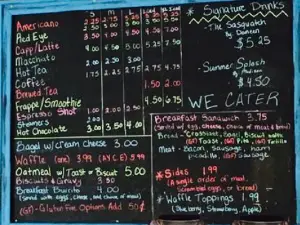 S M L
Americano 2.25 2.75 3.25
Red Eye 3.50 4.00 4.50
Capp/Latte 4.00 5.00 5.25 5.75
Macchiato 2.00 3.00
Hot Tea 1.75 2.25 2.75
Coffee 1.50 2.00
Brewed Tea
Frappe/Smoothie 4.50
Espresso Shot 1.00 2.00
Steamers 2.00
Hot Chocolate 3.00 3.50 4.00
Bagel w/ Cream Cheese 3.00
Waffle (are) 3.99 (A.Y.C.E) 5.99
Oatmeal w/ Toast or Biscuit 5.00
Biscuits & Gravy 3.50
Breakfast Burrito 4.00
(Served with eggs, cheese, and choice of meat)
(GF)- Gluten Free Options Add 50¢
* Signature Drinks
- The Sasquatch
By: Damien
$5.25
- Summer Splash
By:
$4.50
WE CATER
Breakfast Sandwich 3.75
(Served w/ egg, cheese, choice of meat & bread)
Bread - Croissant, Bagel, Biscuit,
(GF) Toast, (GF) Pita, (GF) Tortilla
Meat - Bacon, Sausage, ham
(GF) Sausage
* Sides 1.99
(A single order of meat,
Scrambled eggs, or bread)
* Waffle Toppings 1.99
(Blueberry, Strawberry, Apple)